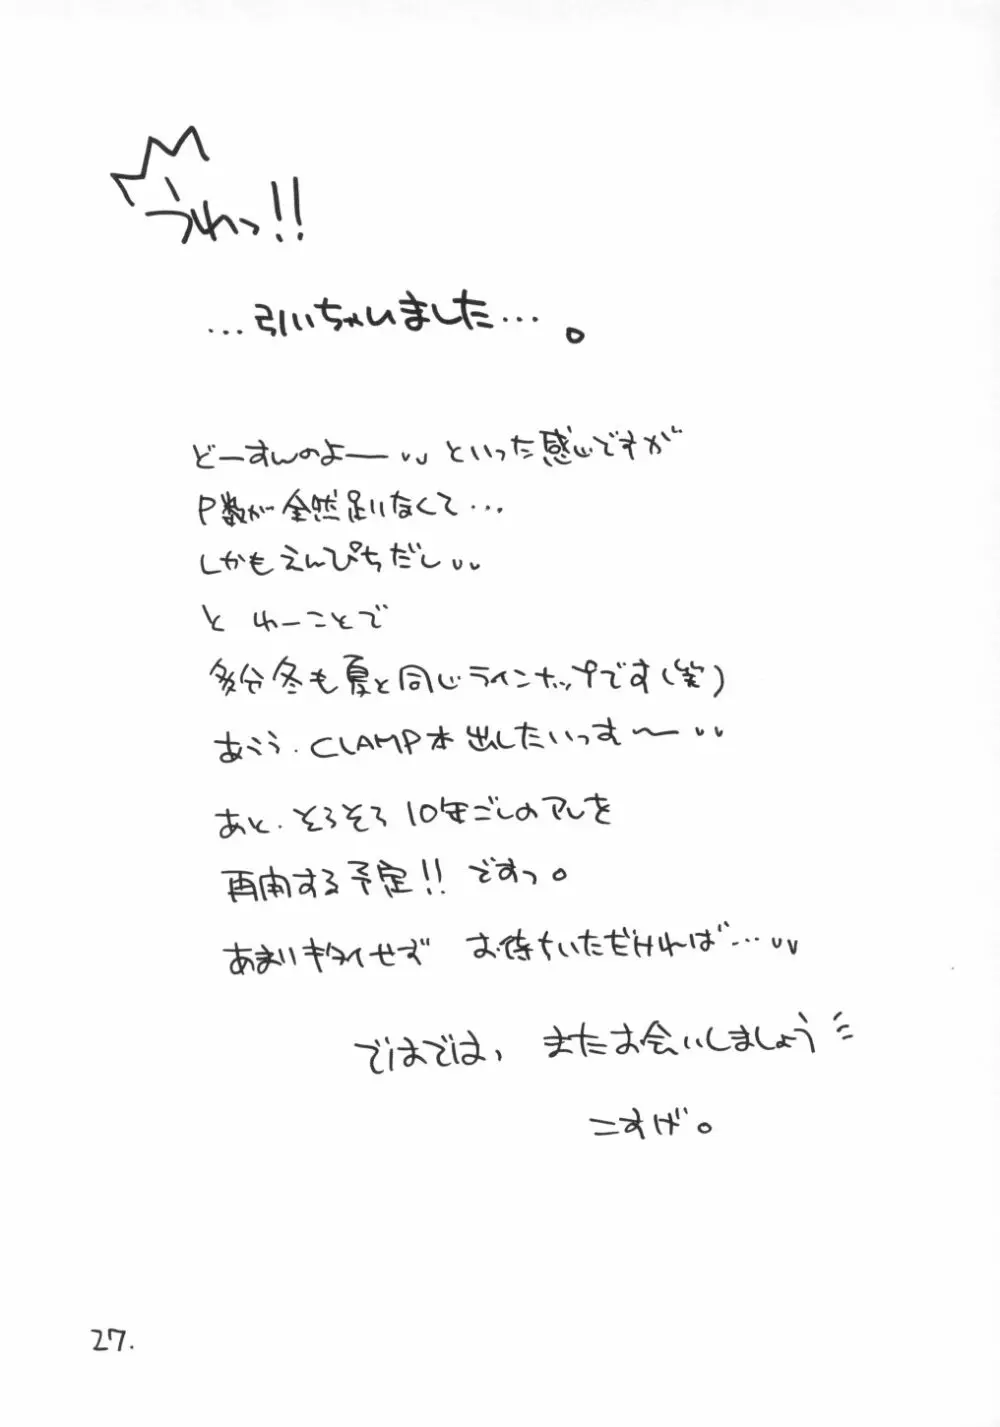 うわっ!!
…引いちゃいました…。
どーすんのよー といった感じですが
P数が全然足りなくて…
しかもえんぴつだし
と ゆーことで
多分冬も夏と同じラインナップです(笑)
あうう. CLAMP本出したいっす〜
あと. そろそろ10年ごしのアレを
再開する予定!! ですっ。
あまりキタイせず お待ちいただければ…
ではでは、 またお会いしましょう
こすげ。
27.